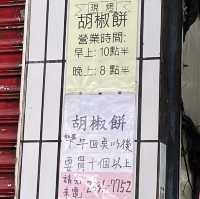 現烤
胡椒餅
營業時間:
早上:10點半
晚上:8點半
胡椒餅
下午四點以後
要買十個以上
請先
來電
7752